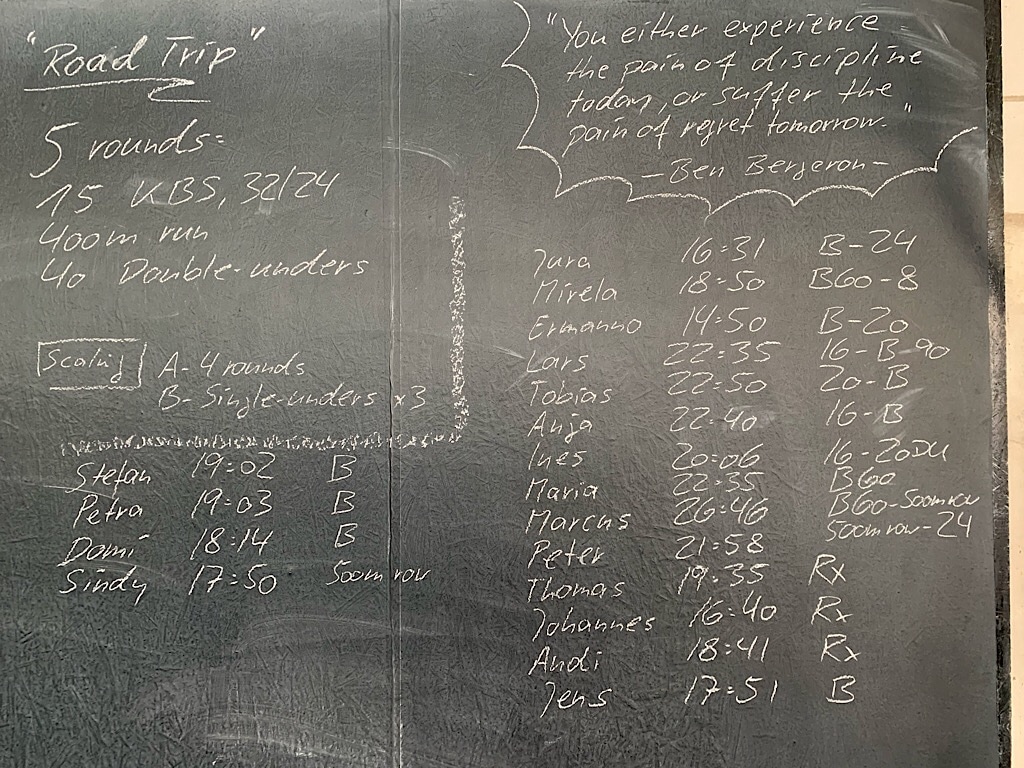 "Road Trip"
5 rounds:
15 KBS, 32/24
400m run
40 Double-unders
Scaling A- 4 rounds
B- Single-unders x3
Stefan 19:02 B
Petra 19:03 B
Domi 18:14 B
Sindy 17:50 500m row
"You either experience
the pain of discipline
today, or suffer the
pain of regret tomorrow."
- Ben Bergeron -
Jura 16:31 B-24
Mirela 18:50 B60-8
Ermanno 14:50 B-20
Lars 22:35 16-B-90
Tobias 22:50 20-B
Anja 22:40 16-B
Ines 20:06 16-20DU
Maria 22:35 B60
Marcus 26:46 B60-500m row
Peter 21:58 500m row-24
Thomas 19:35 Rx
Johannes 16:40 Rx
Andi 18:41 Rx
Jens 17:51 B